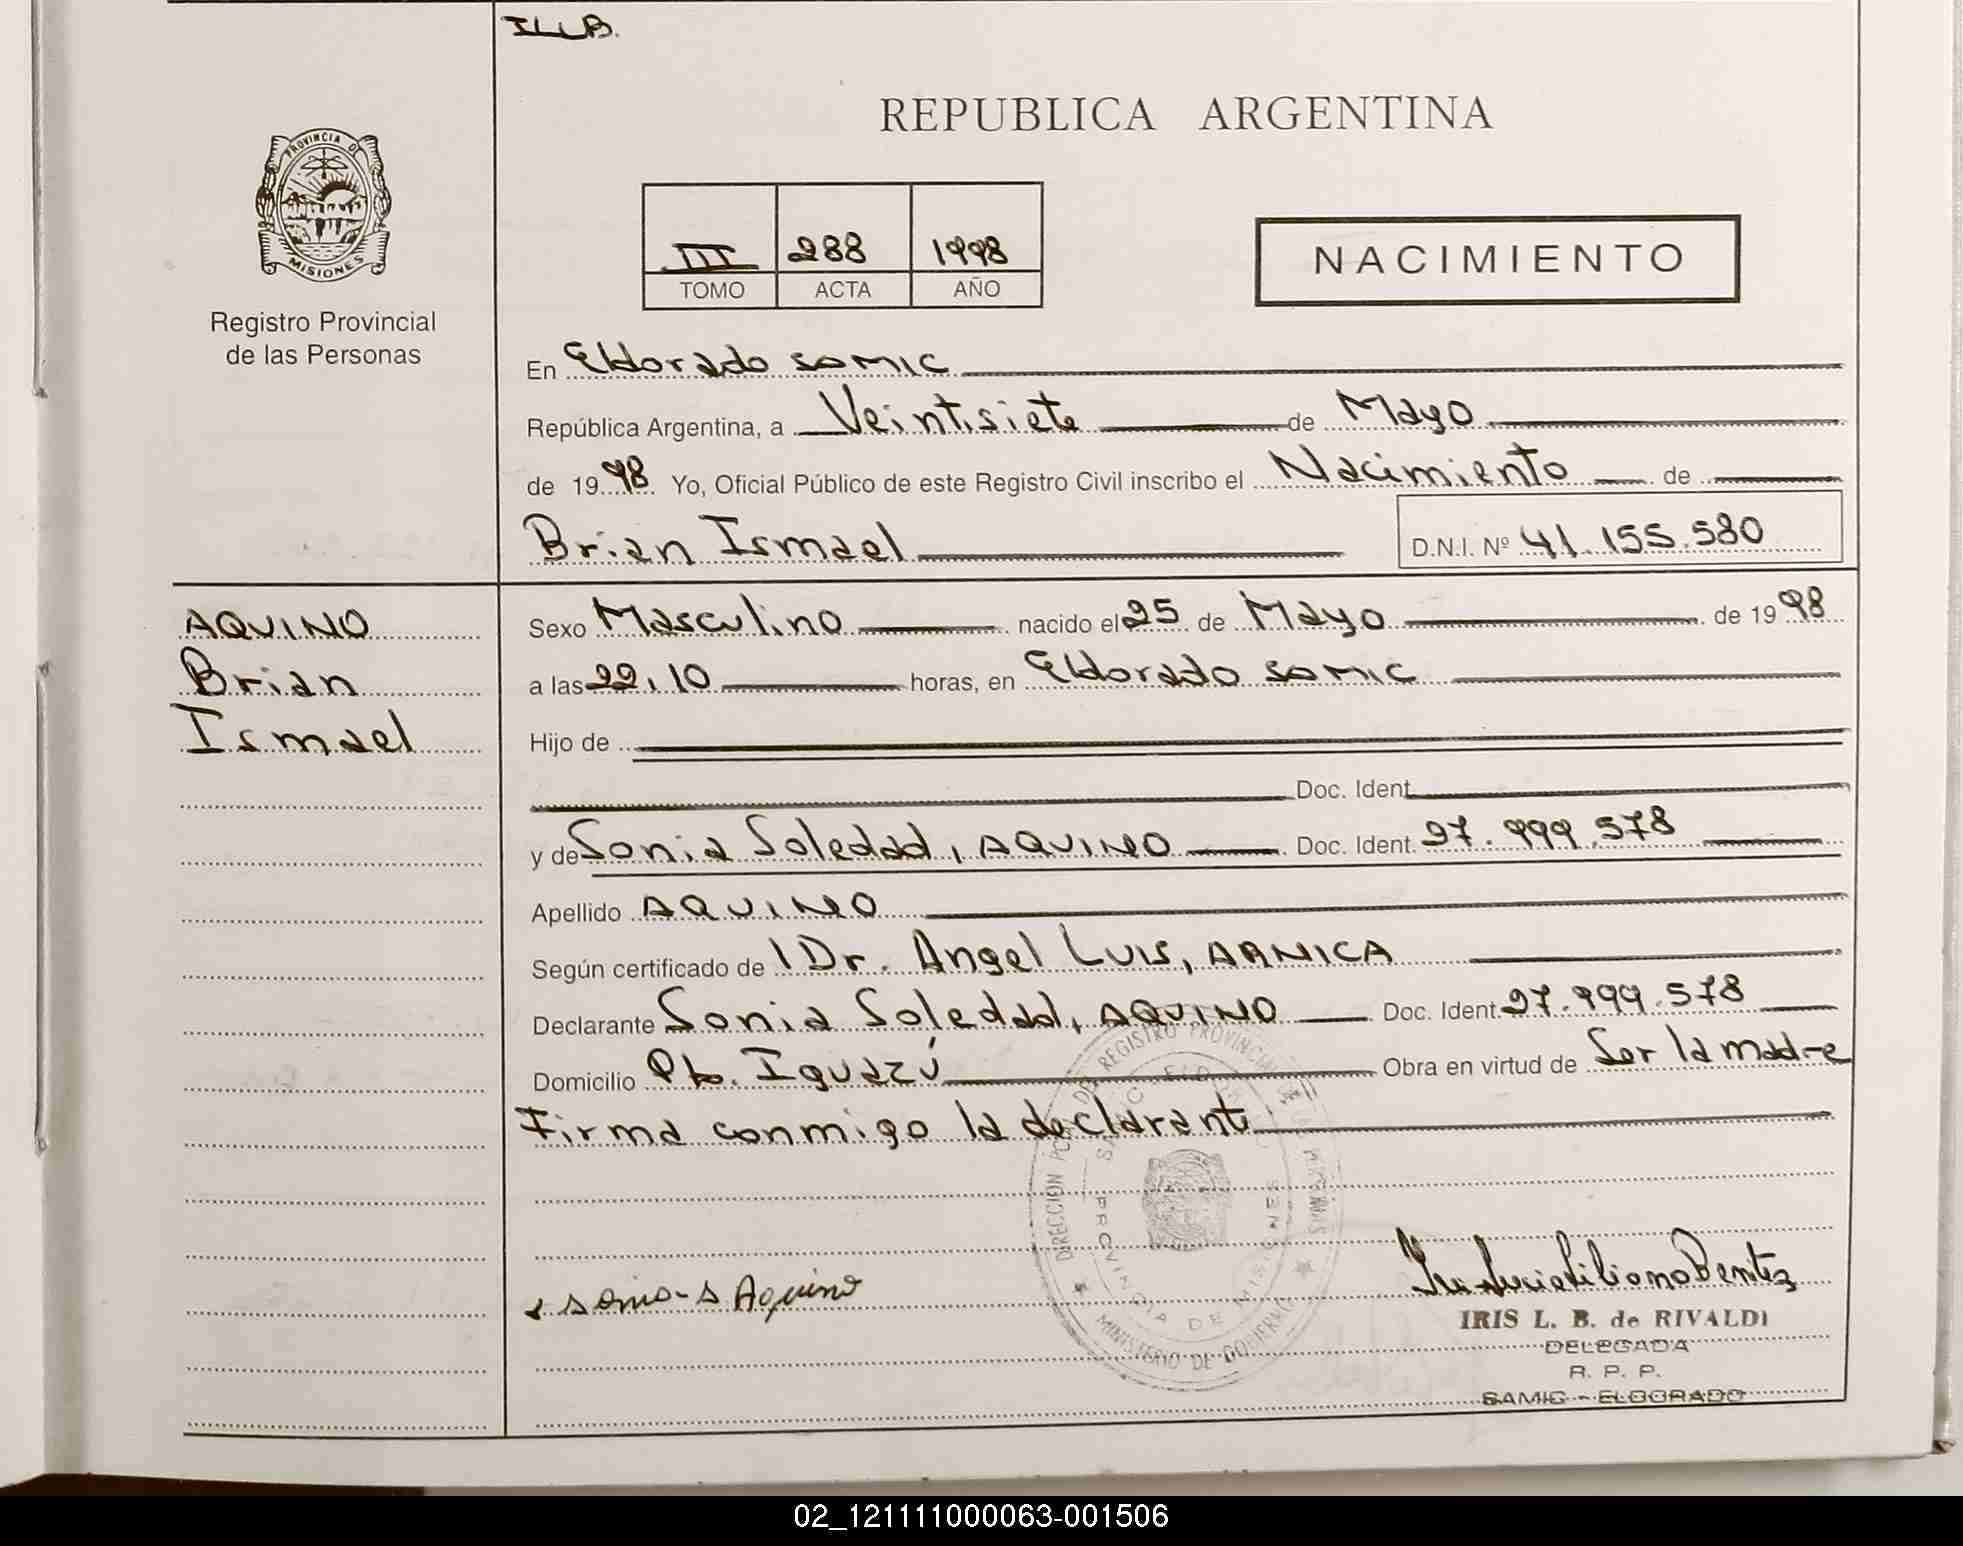 ILLB.
PROVINCIA DE
MISIONES
Registro Provincial
de las Personas
REPUBLICA ARGENTINA
III 288 1998
TOMO ACTA AÑO
NACIMIENTO
En Eldorado samic
República Argentina, a Veintisiete de Mayo
de 1998 Yo, Oficial Público de este Registro Civil inscribo el Nacimiento de
Brian Ismael D.N.I. Nº 41.155.580
AQUINO
Brian
Ismael
Sexo Masculino nacido el 25 de Mayo de 1998
a las 22,10 horas, en Eldorado samic
Hijo de
Doc. Ident.
y de Sonia Soledad, AQUINO Doc. Ident. 27.999.578
Apellido AQUINO
Según certificado de l Dr. Angel Luis, ARNICA
Declarante Sonia Soledad, AQUINO Doc. Ident. 27.999.578
Domicilio Pto. Iguazú Obra en virtud de Ser la madre
Firma conmigo la declarante
DEL REGISTRO PROVINCIAL DE LAS PERSONAS
PROVINCIA DE MISIONES
MINISTERIO DE GOBIERNO
Sonia S Aquino
IRIS L. B. de RIVALDI
DELEGADA
R. P. P.
SAMIC - ELDORADO
02_121111000063-001506